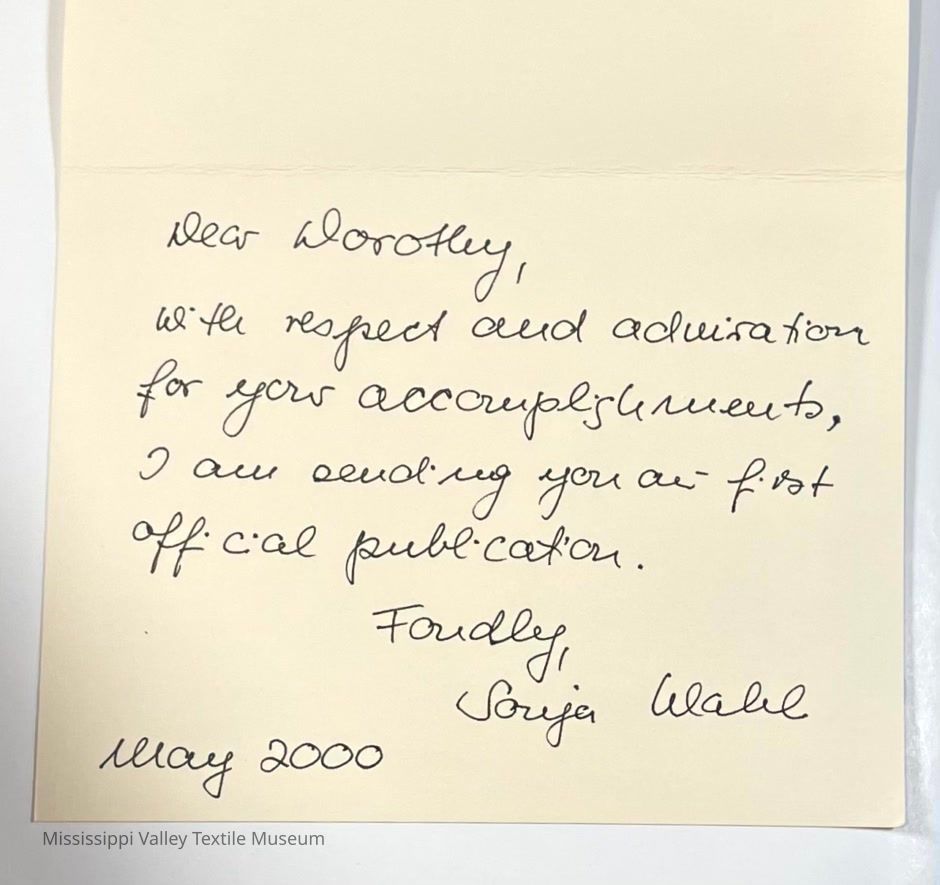 Dear Dorothy,
with respect and admiration
for your accomplishments,
I am sending you our first
official publication.
Fondly,
Sonja Wahl
May 2000
Mississippi Valley Textile Museum